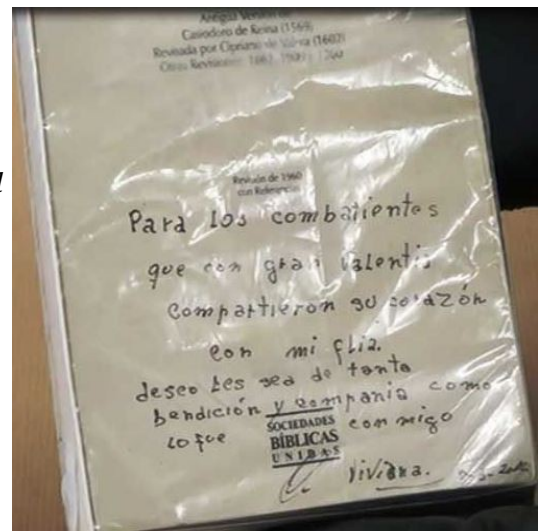 Antigua Versión
Casiodoro de Reina (1569)
Revisada por Cipriano de Valera (1602)
Otras Revisiones: 1862, 1909 y 1960
Revisión de 1960
con Referencias
Para los combatientes
que con gran valentis
compartieron su corazón
con mi flia.
deseo les sea de tanta
bendición y compania como
lo que conmigo
SOCIEDADES
BÍBLICAS
UNIDAS
Viviana.